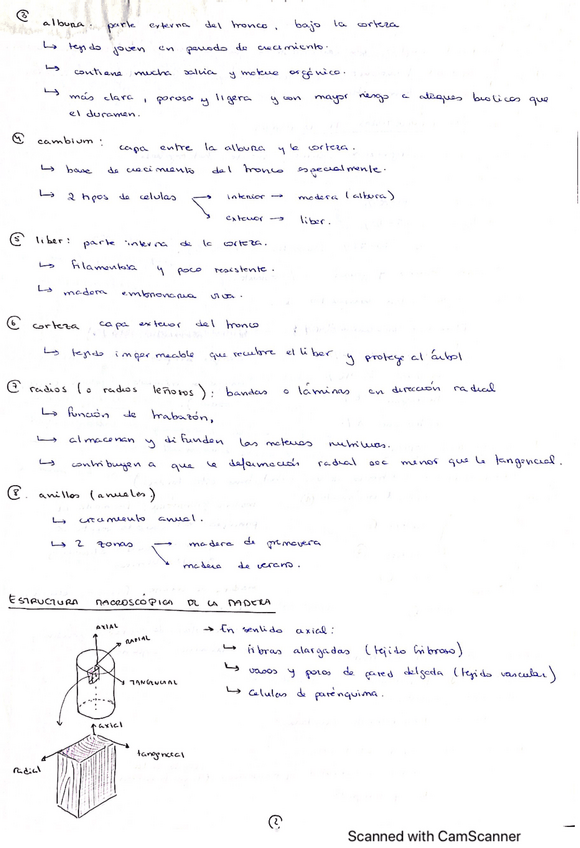 ③ albura: parte externa del tronco, bajo la corteza
↳ tejido joven en periodo de crecimiento.
↳ contiene mucha salvia y materia orgánica.
↳ más clara, porosa y ligera y con mayor riesgo a ataques bioticos que
el duramen.
④ cambium: capa entre la albura y la corteza.
↳ base de crecimiento del tronco especialmente.
↳ 2 tipos de celulas → interior → madera (albura)
exterior → liber.
⑤ liber: parte interna de la corteza.
↳ filamentosa y poco resistente.
↳ madera embrionaria viva.
⑥ corteza capa exterior del tronco
↳ tejido impermeable que recubre el liber y protege al árbol
⑦ radios (o radios leñosos): bandas o láminas en dirección radial
↳ función de trabazón,
↳ almacenan y difunden las materias nutritivas.
↳ contribuyen a que la deformación radial sea menor que la tangencial.
⑧ anillos (anuales)
↳ crecimiento anual.
↳ 2 zonas → madera de primavera
madera de verano.
ESTRUCTURA MACROSCÓPICA DE LA MADERA
AXIAL
RADIAL
TANGENCIAL
axial
tangencial
radial
→ En sentido axial:
↳ fibras alargadas (tejido fibroso)
↳ vasos y poros de pared delgada (tejido vascular)
↳ celulas de parénquima.
②
Scanned with CamScanner